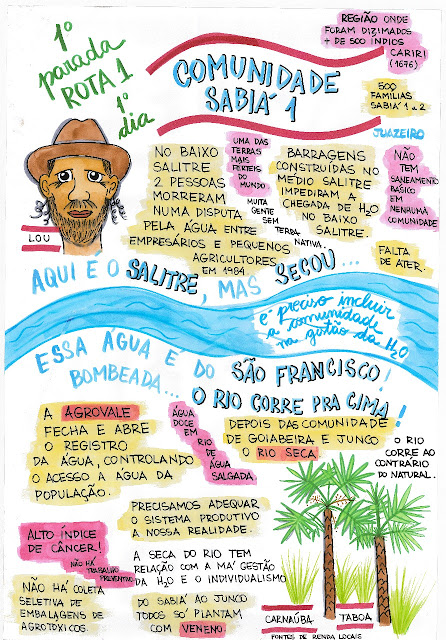 1º
parada
ROTA 1
1º
dia
COMUNIDADE
SABIÁ 1
REGIÃO ONDE
FORAM DIZIMADOS
+ DE 500 ÍNDIOS
CARIRI
(1676)
500
FAMÍLIAS
SABIÁ 1 e 2
JUAZEIRO
LOU
NO BAIXO
SALITRE
2 PESSOAS
MORRERAM
NUMA DISPUTA
PELA ÁGUA ENTRE
EMPRESÁRIOS E PEQUENOS
AGRICULTORES
EM 1984.
UMA DAS
TERRAS
MAIS
FERTEIS
DO
MUNDO
MUITA
GENTE
SEM
TERRA
NATIVA.
BARRAGENS
CONSTRUÍDAS NO
MÉDIO SALITRE
IMPEDIRAM A
CHEGADA DE H2O
NO BAIXO
SALITRE.
NÃO
TEM
SANEAMENTO
BÁSICO
EM
NENHUMA
COMUNIDADE
FALTA
DE ATER.
AQUI É O SALITRE, MAS SECOU...
é preciso incluir
a comunidade
na gestão da H2O
ESSA ÁGUA É DO SÃO FRANCISCO!
BOMBEADA... O RIO CORRE PRA CIMA!
A AGROVALE
FECHA E ABRE
O REGISTRO
DA ÁGUA, CONTROLANDO
O ACESSO A ÁGUA DA
POPULAÇÃO.
ÁGUA
DOCE
EM
RIO
DE
ÁGUA
SALGADA.
DEPOIS DAS COMUNIDADE
DE GOIABEIRA E JUNCO
O RIO SECA.
O RIO
CORRE AO
CONTRÁRIO
DO NATURAL.
PRECISAMOS ADEQUAR
O SISTEMA PRODUTIVO
A NOSSA REALIDADE.
ALTO ÍNDICE
DE CÂNCER!
NÃO HÁ
TRABALHO
PREVENTIVO
A SECA DO RIO TEM
RELAÇÃO COM A MÁ GESTÃO
DA H2O E O INDIVIDUALISMO
NÃO HÁ COLETA
SELETIVA DE
EMBALAGENS DE
AGROTÓXICOS
DO SABIÁ AO JUNCO
TODOS SÓ PLANTAM
COM VENENO
CARNAÚBA
TABOA
FONTES DE RENDA LOCAIS